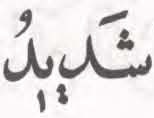 شَدِيدُ